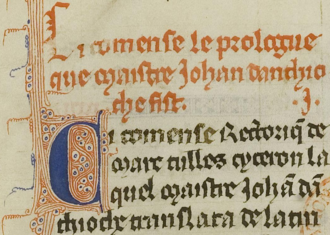 Ci comense le prologue
que maistre Johan danthio
che fist. .j.
Ci comense Rectoriq̃ de
marc tulles cyceron la
quel maistre Johã dã
thioche translata de latin